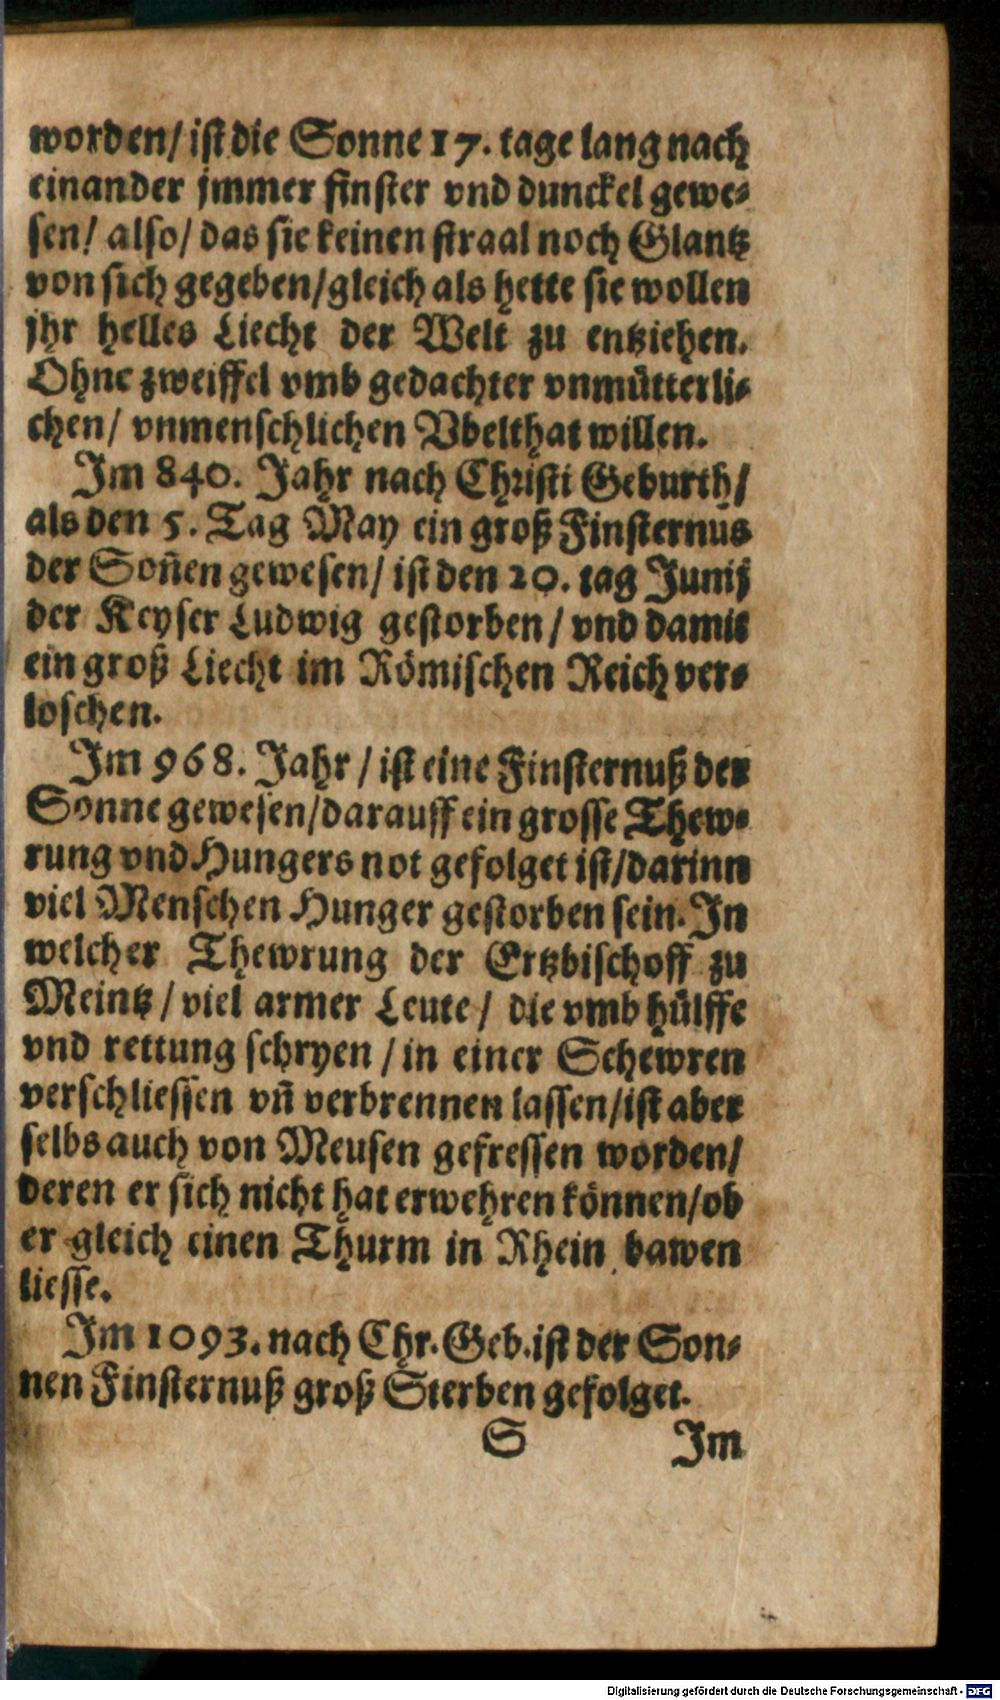 worden/ ist die Sonne 17. tage lang nach
einander jmmer finster vnd dunckel gewe⸗
sen/ also/ das sie keinen straal noch Glantz
von sich gegeben/gleich als hette sie wollen
jhr helles Liecht der Welt zu entziehen.
Ohne zweiffel vmb gedachter vnmütterli⸗
chen/ vnmenschlichen Vbelthat willen.
Im 840. Jahr nach Christi Geburth/
als den 5. Tag May ein groß Finsternüs
der Soñen gewesen/ ist den 20. tag Junij
der Keyser Ludwig gestorben/ vnd damit
ein groß Liecht im Römischen Reich ver⸗
loschen.
Im 968. Jahr/ ist eine Finsternuß der
Sonne gewesen/darauff ein grosse Thew⸗
rung vnd Hungers not gefolget ist/darinn
viel Menschen Hunger gestorben sein. In
welcher Thewrung der Ertzbischoff zu
Meintz/ viel armer Leute/ die vmb hülffe
vnd rettung schryen/ in einer Schewren
verschliessen vñ verbrennen lassen/ist aber
selbs auch von Meusen gefressen worden/
deren er sich nicht hat erwehren können/ob
er gleich einen Thurm in Rhein bawen
liesse.
Im 1093. nach Chr. Geb. ist der Son⸗
nen Finsternuß groß Sterben gefolget.
S Im
Digitalisierung gefördert durch die Deutsche Forschungsgemeinschaft - DFG